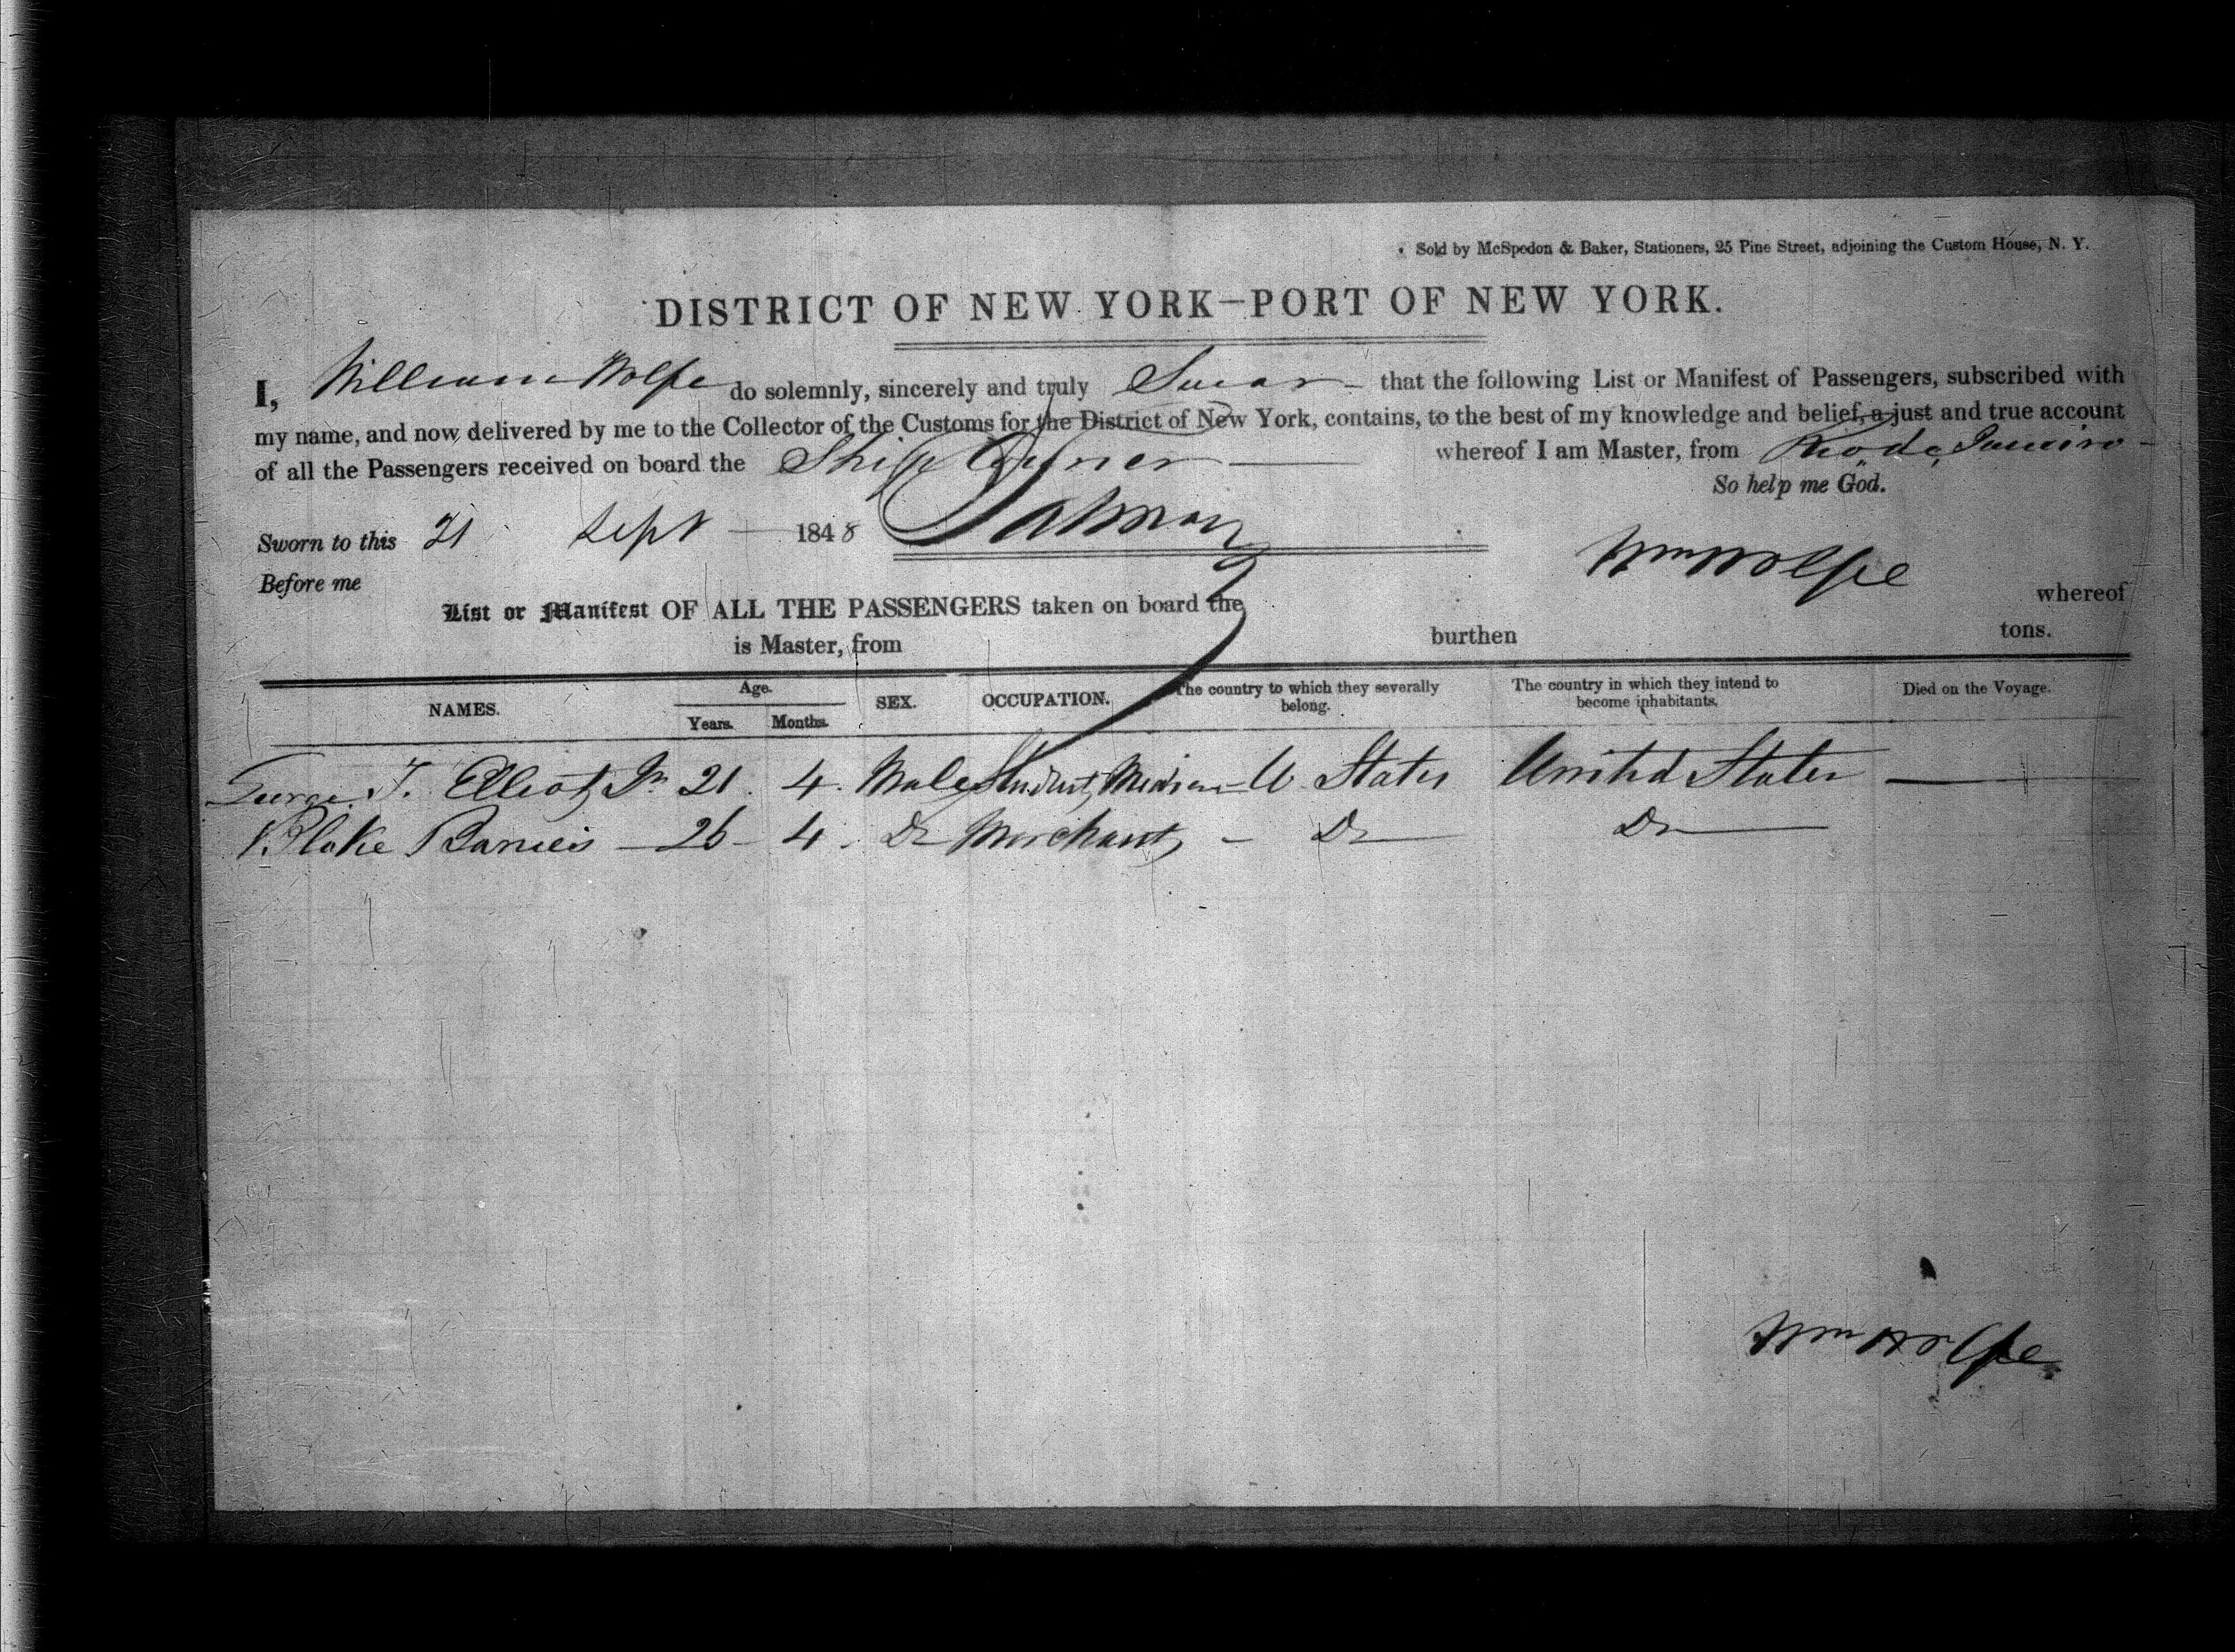 Sold by McSpedon & Baker, Stationers, 25 Pine Street, adjoining the Custom House, N. Y.
DISTRICT OF NEW YORK—PORT OF NEW YORK.
I, William Wolfe do solemnly, sincerely and truly Swear that the following List or Manifest of Passengers, subscribed with
my name, and now delivered by me to the Collector of the Customs for the District of New York, contains, to the best of my knowledge and belief, a just and true account
of all the Passengers received on board the Ship whereof I am Master, from Rio de Janeiro
So help me God.
Sworn to this 21 Sept 1848
Wm Wolfe
Before me
List or Manifest OF ALL THE PASSENGERS taken on board the whereof
is Master, from burthen tons.
NAMES. Age. Years. Months. SEX. OCCUPATION. The country to which they severally belong. The country in which they intend to become inhabitants. Died on the Voyage.
George T. Elliot Jr 21 4 Male Student, U States United States
Blake 26 4 Do Merchant Do Do
Wm Wolfe